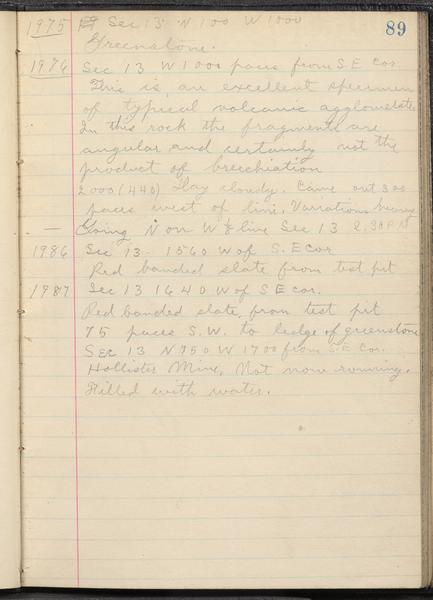 89
1975 Sec 13 N 100 W 1000
Greenstone.
1976 Sec 13 W 1000 paces from S.E cor
This is an excellent specimen
of typical volcanic agglomerate
In this rock the fragments are
angular and certainly not the
product of brecciation
2000 (440) Day cloudy. Came out 300
paces west of line. Variation
— Going N on W ½ line Sec 13 2.30 P.M
1986 Sec 13 - 1560 W of S.E cor
Red banded slate from test pit
1987 Sec 13 1640 W of S E cor.
Red banded slate from test pit
75 paces S.W. to ledge of greenstone
Sec 13 N 950 W 1700 from S.E Cor.
Hollister Mine. Not now running.
Filled with water.